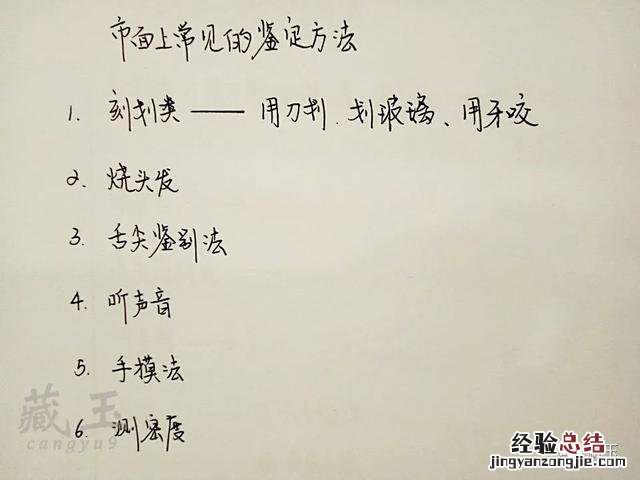 市面上常见的鉴定方法
1. 刻划类 —— 用刀划、划玻璃、用牙咬
2. 烧头发
3. 舌尖鉴别法
4. 听声音
5. 手模法
6. 测密度
藏玉
cangyu9
经验总结
jingyanzongjie.com